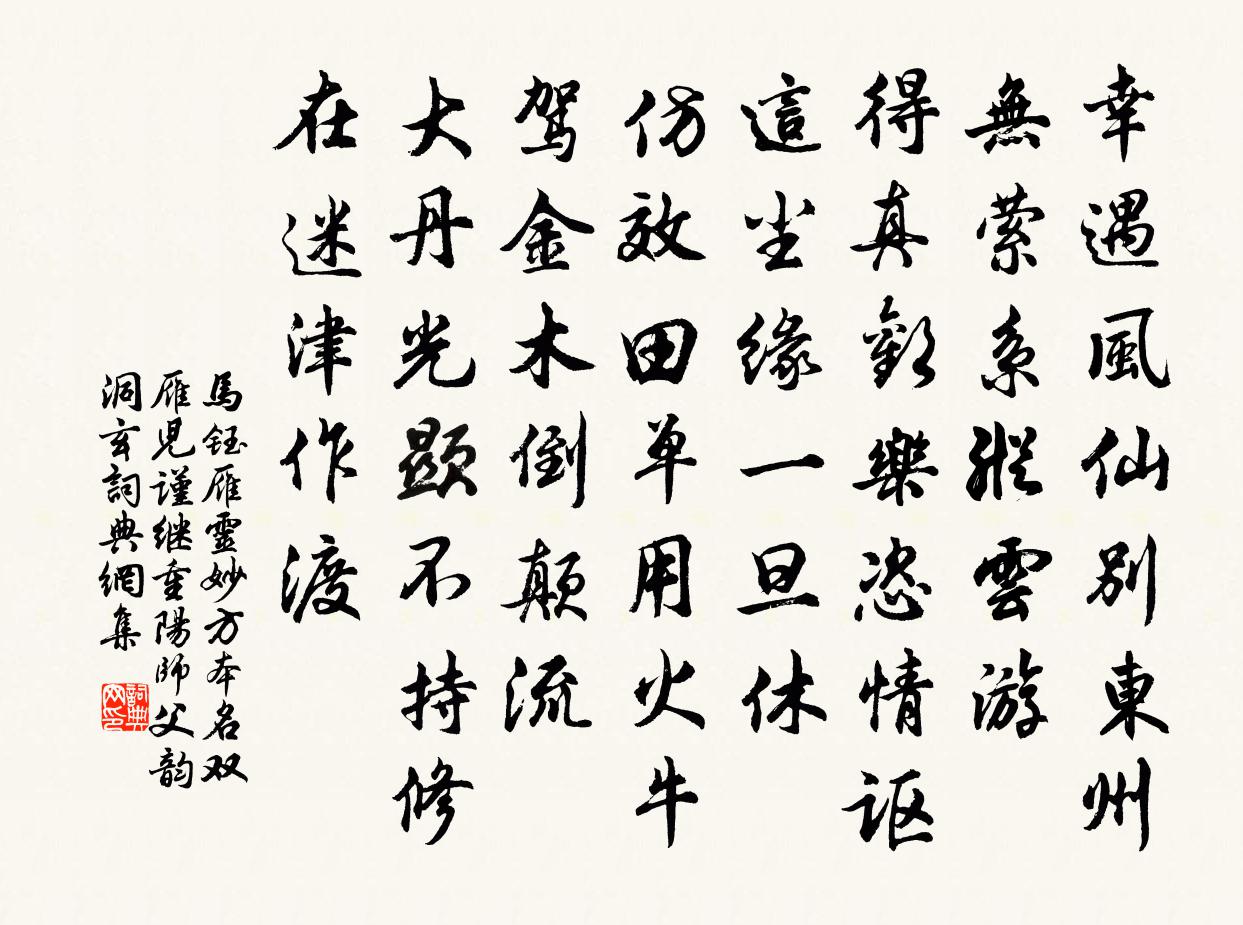 幸遇風仙別東州
無萦系縱雲游
得真歡樂恣情讴
這尘缘一旦休
仿效田单用火牛
驾金木倒颠流
大丹光顕不持修
在迷津作渡
馬钰雁靈妙方本名双
雁児谨继重陽師父韵
洞玄詞典網集
詞典网印